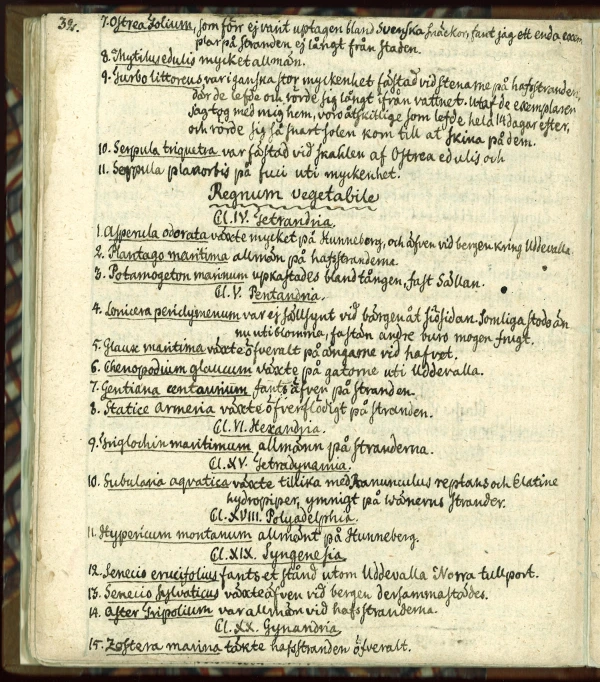 32.
7. Ostrea Solium, som förr ej varit uptagen bland Svenska snäckor, fant jag ett enda exem
plar på stranden ej långt från staden.
8. Mytilus edulis mycket allmän.
9. Turbo littoreus var i ganska stor myckenhet fästad vid stenarne på hafsstranden,
där de lefde och rörde sig långt ifrån vattnet. Utaf de exemplaren
jag tog med mig hem, voro åtskillige som lefde hela 14 dagar efter,
och rörde sig så snart solen kom till at skina på dem.
10. Serpula triquetra var fästad vid skahlen af Ostrea edulis och
11. Serpula planorbis på fuci uti myckenhet.
Regnum vegetabile
Cl. IV. Tetrandria.
1. Asperula odorata växte mycket på Hunneberg, och äfven vid bergen kring Uddevalla.
2. Plantago maritima allmän på hafsstranderna.
3. Potamogeton marinum upkastades bland tången, fast sällan.
Cl. V. Pentandria.
4. Lonicera periclymenum var ej sällsynt vid bärgen åt siösidan. Somliga stodo än
nu uti blomma, fastän andre buro mogen frugt.
5. Glaux maritima växte öfveralt på ängarne vid hafvet.
6. Chenopodium glaucum växte på gatorne uti Uddevalla.
7. Gentiana centaurium fants äfven på stranden.
8. Statice Armeria växte öfverflödigt på stranden.
Cl. VI. Hexandria.
9. Triglochin maritimum allmänn på stranderna.
Cl. XV. Tetradynamia.
10. Subularia aquatica växte tillika med Ranunculus reptans och Elatine
hydropiper, ymnigt på Wänerns stränder.
Cl. XVIII. Polyadelphia.
11. Hypericum montanum allmänt på Hunneberg.
Cl. XIX. Syngenesia
12. Senecio erucifolius fants et stånd utom Uddevalla Norra tullport.
13. Senecio Sylvaticus växte äfven vid bergen dersammastädes.
14. Aster Tripolium var allmän vid hafsstranderna.
Cl. XX. Gynandria
15. Zostera marina täkte hafsstranden öfveralt.